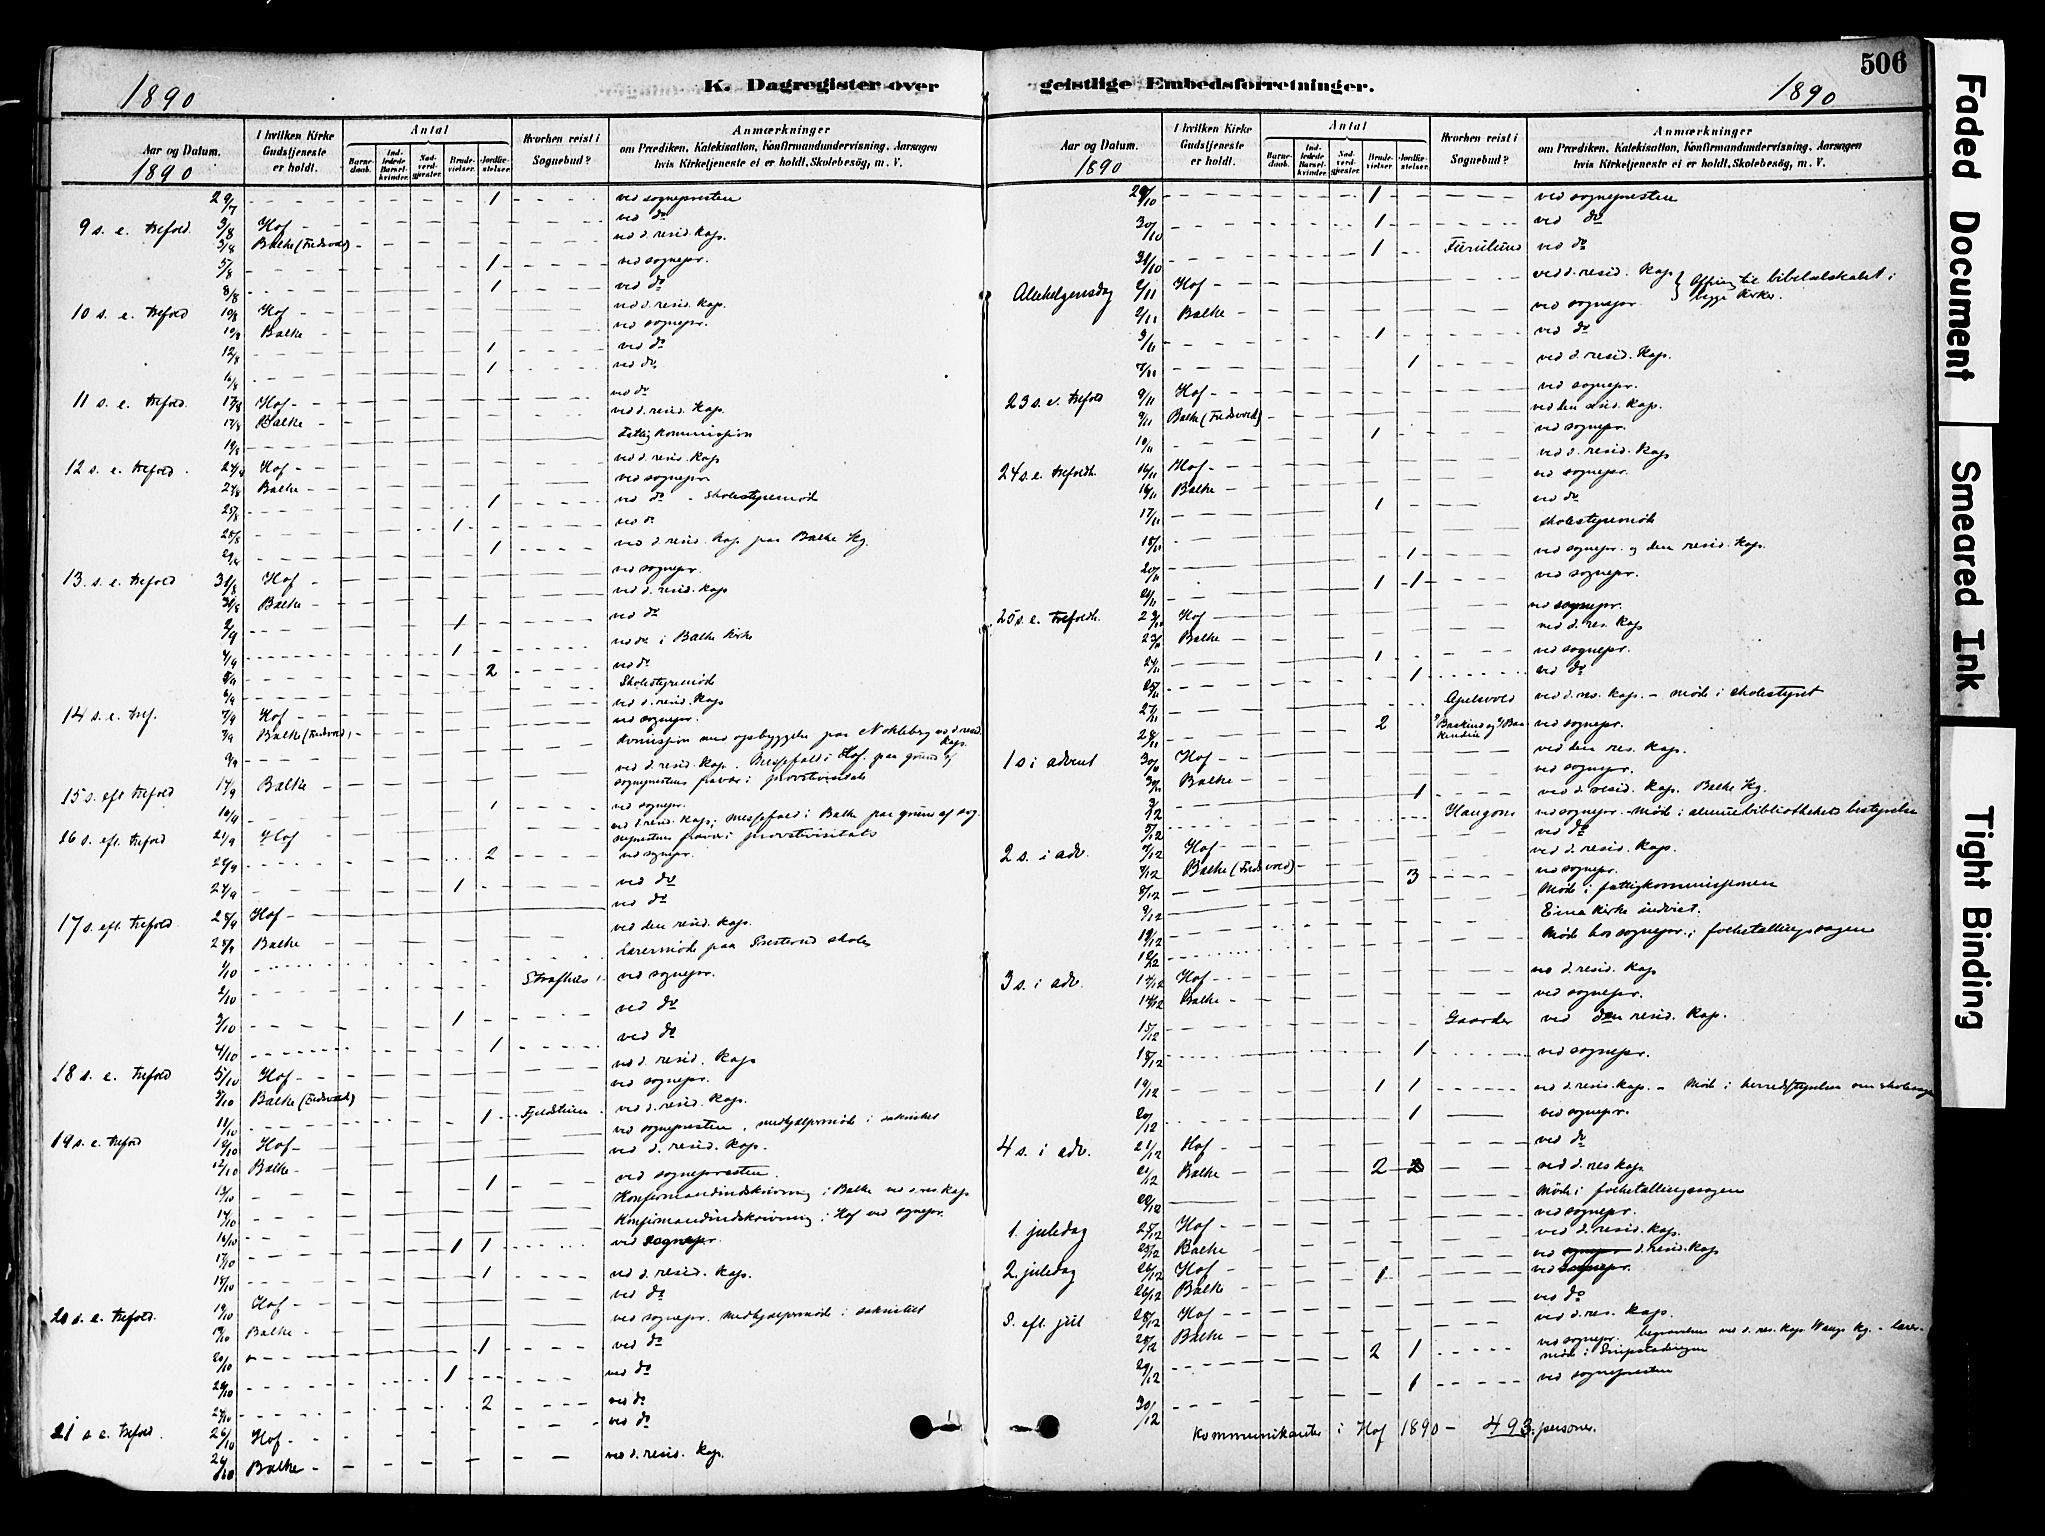 506
1890
K. Dagregister over geistlige Embedsforretninger.
1890
Aar og Datum.
1890
I hvilken Kirke Gudstjeneste er holdt.
Antal
Barnedaab.
Indledede Barselkvinder.
Nadverdgjester.
Brudevielser.
Jordfæstelser.
Hvorhen reist i Sognebud?
Anmærkninger
om Prædiken, Katekisation, Konfirmandundervisning, Aarsagen
hvis Kirketjeneste ei er holdt, Skolebesøg, m. V.
29/7 1 ved sognepresten
9 s. e. trefold. 3/8 Hof ved do
3/8 Balke (Fredsvold) ved d. resid. kap.
5/8 1 ved sognepr.
8/8 1 ved do
10 s. e. trefold 10/8 Hof ved d. resid. kap.
10/8 Balke ved sognepr.
12/8 1 ved do
16/8 1 ved do
11 s. e. trefold. 17/8 Hof ved do
17/8 Balke ved d. resid. kap.
19/8 Fattigkommission
12 s. e. trefold. 24/8 Hof ved d. resid. kap
24/8 Balke ved sognepr.
25/8 1 ved do - skolestyremøde
28/8 1 ved do
29/8 1 ved d. resid. kap. paa Balke Kg.
13. s. e. trefold 31/8 Hof ved sognepr.
31/8 Balke ved d. resid. kap
2/9 1 ved do
4/9 1 ved do i Balke kirke
5/9 2 ved do
6/9 Skolestyremøde
14 s. e. tref. 7/9 Hof ved d. resid. kap
7/9 Balke (Fredsvold) ved sognepr.
9/9 ved d. resid. kap.
15 s. eft trefold 14/9 Balke ved d. resid. kap. Messefald i Hof paa grund af
sognepresten fravær i provstivisitats
16/9 1 ved sognepr.
16 s. eft. trefold 21/9 Hof ved d. resid. kap; messefald i Balke paa grund af sog.
nepresten fravær i provstivisitats
2 ved sognepr.
24/9 1 ved do
17 s. eft. trefold. 28/9 Hof ved do
28/9 Balke ved den resid. kap.
1/10 Lærermøde paa skole
2/10 ved sognepr.
3/10 1 ved do
4/10 1 ved do
18 s. e. trefold 5/10 Hof ved d. resid. kap
5/10 Balke (Fredsvold) ved sognepr.
11/10 1 ved d. resid. kap.
19 s. e. trefold 12/10 Hof ved sognepresten, medhjælpermøde i sakristiet
12/10 Balke ved d. resid. kap.
13/10 1 ved sognepresten
14/10 Konfirmandindskrivning i Balke ved d. res kap
16/10 Konfirmandindskrivning i Hof ved sognepr.
17/10 1 1 ved sognepr.
18/10 1 ved d. resid. kap.
20 s. e. trefold. 19/10 Hof ved do
19/10 Balke ved sognepr. medhjælpermøde i sakristiet
20/10 1 ved do
1 ved do
24/10 2 ved do
21 s e. trefold. 26/10 Hof ved do
26/10 Balke ved d. resid. kap.
Aar og Datum.
1890
I hvilken Kirke Gudstjeneste er holdt.
Antal
Barnedaab.
Indledede Barselkvinder.
Nadverdgjester.
Brudevielser.
Jordfæstelser.
Hvorhen reist i Sognebud?
Anmærkninger
om Prædiken, Katekisation, Konfirmandundervisning, Aarsagen
hvis Kirketjeneste ei er holdt, Skolebesøg, m. V.
29/10 1 ved sognepresten
30/10 1 ved do
31/10 1 Furulund ved do
Allehelgensdag 2/11 Hof ved d. resid. kap } Offring til bibelselskabet i
2/11 Balke ved sognepr. begge kirker.
3/11 1 ved do
7/11 1 ved d. resid. kap.
23 s. e. trefold 9/11 Hof ved sognepr.
9/11 Balke (Fredsvold) ved den resid. kap.
10/11 1 ved sognepr.
24 s. e. trefoldh. 16/11 Hof ved d. resid. kap
16/11 Balke ved sognepr.
17/11 1 ved do
18/11 skolestyremøde
20/11 1 ved sognepr. og den resid. kap.
21/11 1 1 ved sognepr.
25 s. e. trefoldh. 23/11 Hof ved sognepr.
23/11 Balke ved d. res. kap
24/11 1 ved sognepr.
25/11 1 ved do
27/11 Apelsvold ved d. res. kap. - møde i skolestyret
28/11 2 ved sognepr.
1 s i advent 30/11 Hof ved den res. kap.
30/11 Balke ved sognepr.
3/12 1 ved d. resid. kap. Balke Kg.
5/12 Haugom ved sognepr. - møde i almuebibliothekets bestyrelse
ved do
2 s. i adv. 7/12 Hof ved d. resid. kap.
7/12 Balke (Fredsvold) ved sognepr.
8/12 3 Møde i fattigkommissionen
9/12 Eina kirke indviet.
Møde hos sognepr. i folketællingssagen
3 s. i adv. 14/12 Hof ved d. resid. kap
14/12 Balke ved sognepr.
15/12 Gaarder ved den resid. kap.
18/12 1 ved sognepr.
19/12 1 1 ved d. resid. kap. - Møde i herredsstyrelsen om skolesag
20/12 1 ved sognepr.
4 s. i adv. 21/12 Hof ved do
21/12 Balke 2 ved d. res kap
22/12 Møde i folketællingssagen
1. juledag 25/12 Hof ved sognepr.
25/12 Balke ved d. resid. kap.
2. juledag 26/12 Hof 1 ved sognepr d. resid. kap
26/12 Balke ved sognepr.
ved do
S. eft. jul 28/12 Hof ved d. res. kap.
28/12 Balke ved sognepr.
29/12 2 1
30/12 1 ved sognepresten
Kommunikanter i Hof 1890 - 493 personer.
Faded Document
Smeared Ink
Tight Binding